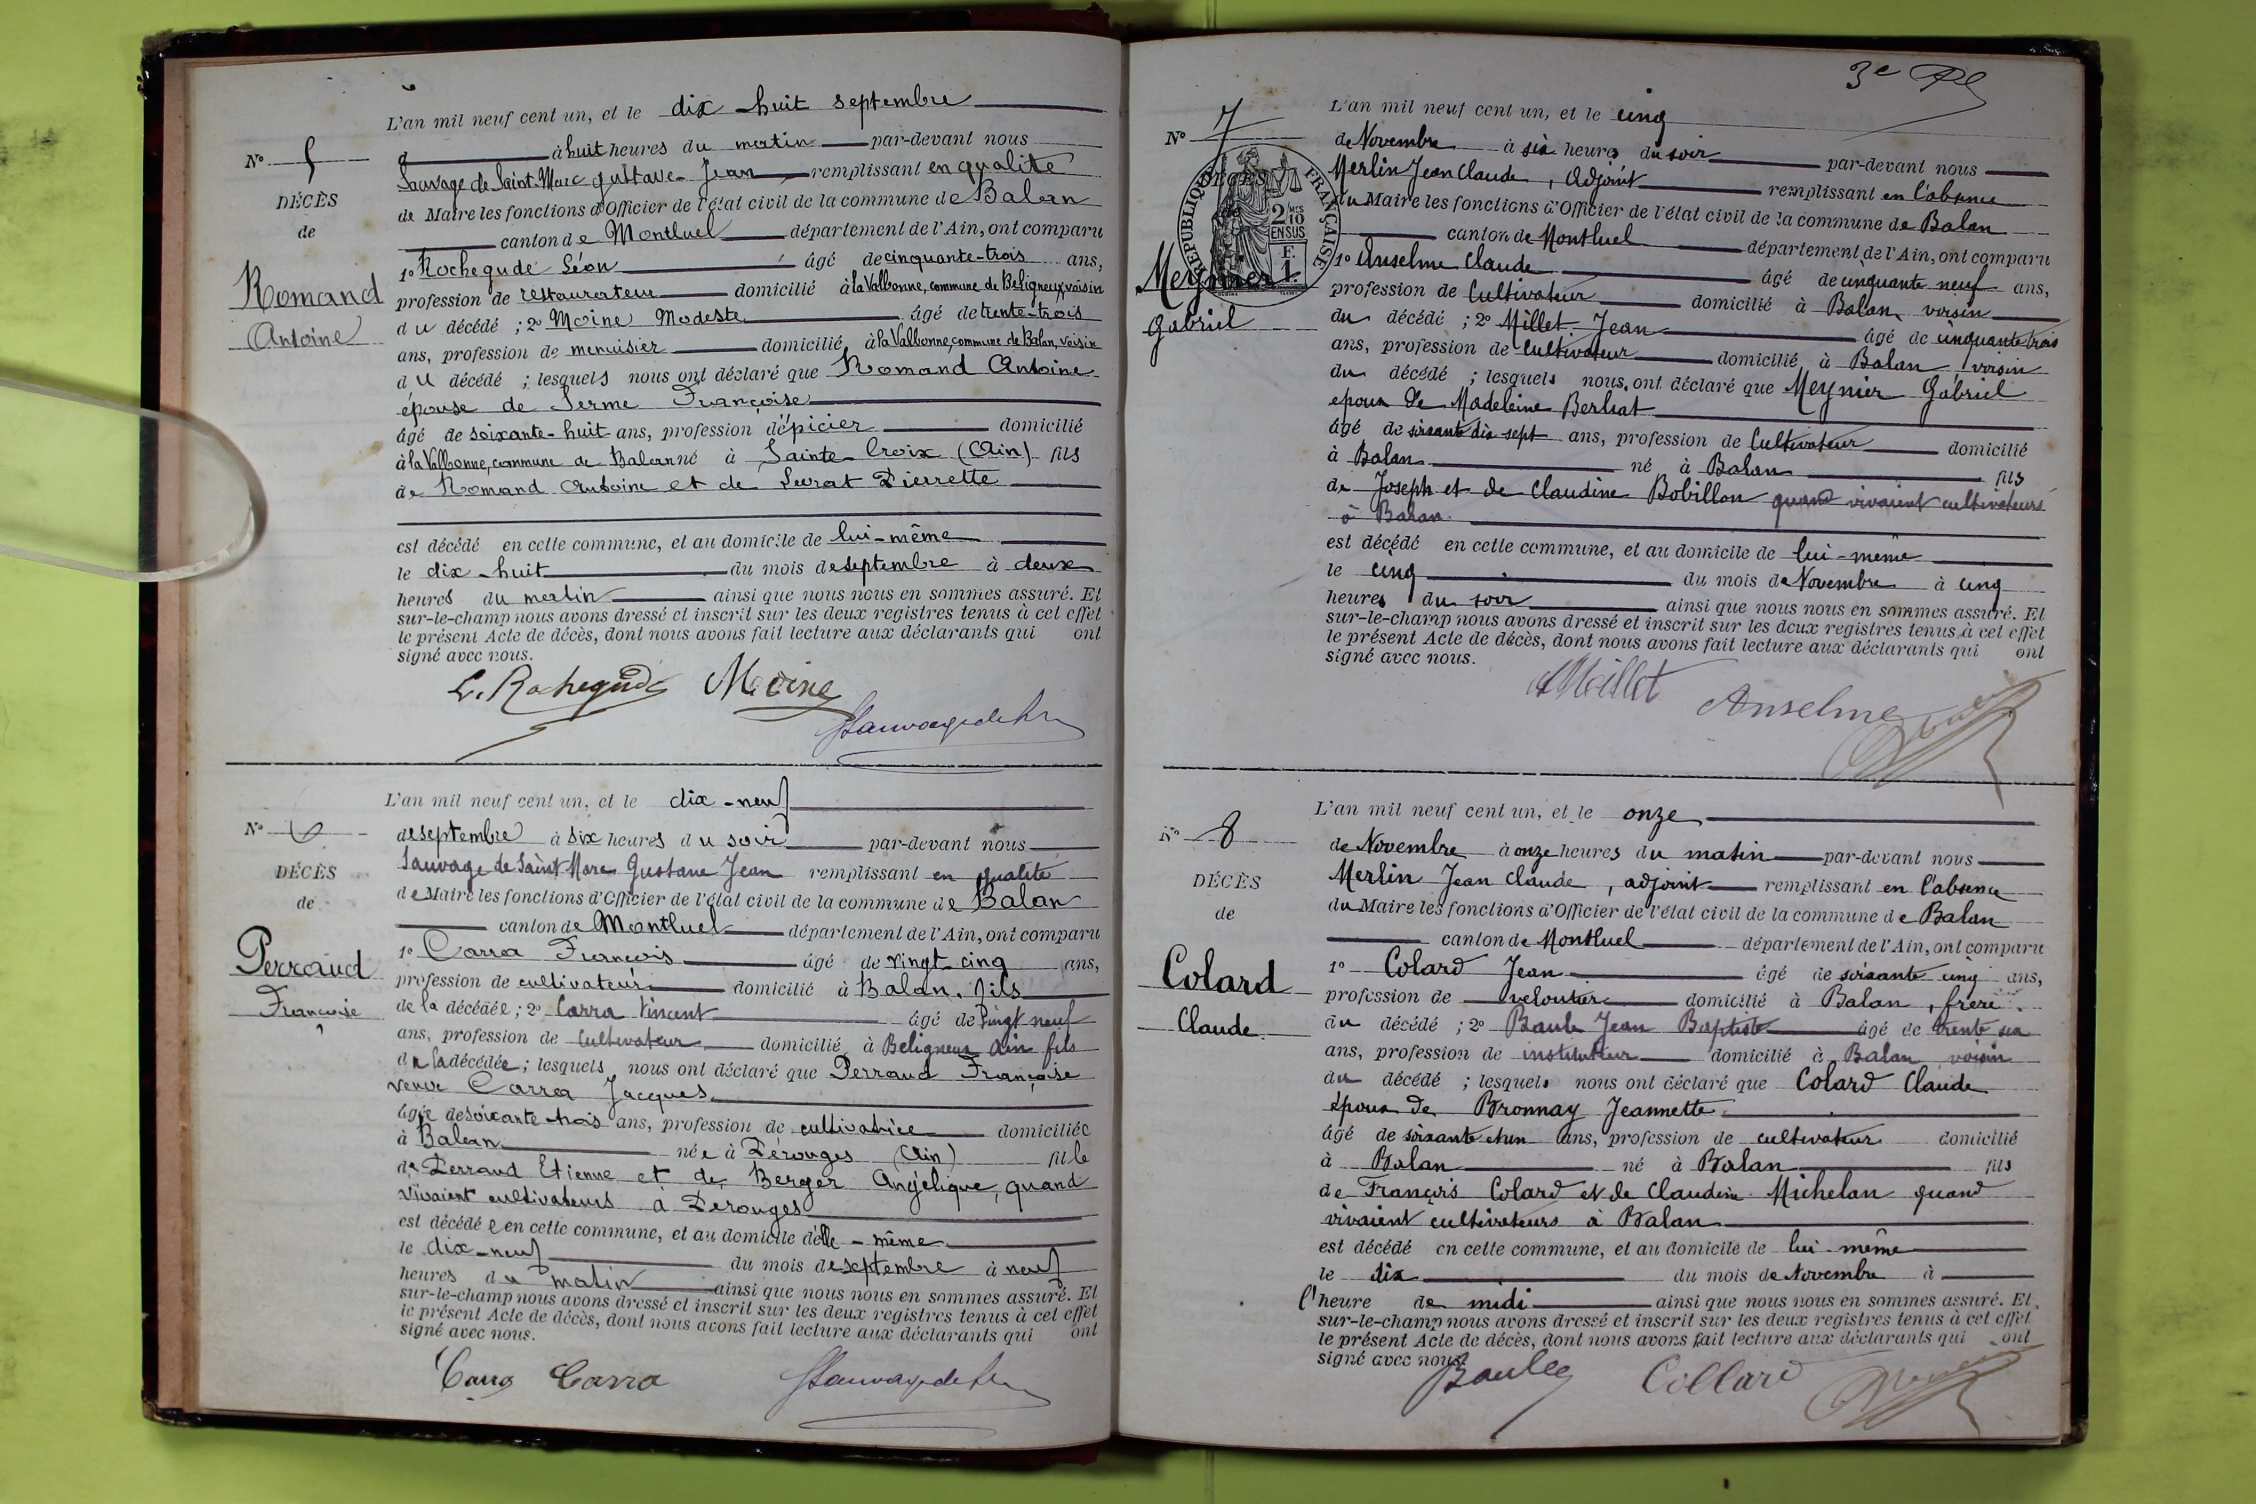 L'an mil neuf cent un, et le dix-huit septembre
N° 5
à huit heures du matin par-devant nous
Sauvage de Saint-Marc Gustave Jean remplissant en qualité
DÉCÈS
de Maire les fonctions d'Officier de l'état civil de la commune de Balan
de
canton de Montluel département de l'Ain, ont comparu
1° Rochegude Léon âgé de cinquante-trois ans,
Romand
profession de restaurateur domicilié à la Valbonne, commune de Beligneux, voisin
du décédé ; 2° Moine Modeste âgé de trente-trois
Antoine
ans, profession de menuisier domicilié à la Valbonne, commune de Balan, voisin
du décédé ; lesquels nous ont déclaré que Romand Antoine
épouse de Serme Françoise
âgé de soixante-huit ans, profession d'épicier domicilié
à la Valbonne, commune de Balan né à Sainte-Croix (Ain) fils
de Romand Antoine et de Pierrette
est décédé en cette commune, et au domicile de lui-même
le dix-huit du mois de septembre à deux
heures du matin ainsi que nous nous en sommes assuré. Et
sur-le-champ nous avons dressé et inscrit sur les deux registres tenus à cet effet
le présent Acte de décès, dont nous avons fait lecture aux déclarants qui ont
signé avec nous.
L. Rochegude Moine
L'an mil neuf cent un, et le dix-neuf
N° 6
de septembre à six heures du soir par-devant nous
Sauvage de Saint Marc Gustave Jean remplissant en qualité
DÉCÈS
de Maire les fonctions d'Officier de l'état civil de la commune de Balan
de
canton de Montluel département de l'Ain, ont comparu
1° Carra François âgé de vingt-cinq ans,
Perraud
profession de cultivateur domicilié à Balan, fils
Françoise
de la décédée ; 2° Carra Vincent âgé de vingt neuf
ans, profession de cultivateur domicilié à Beligneux Ain fils
de la décédée ; lesquels nous ont déclaré que Perraud Françoise
veuve Carra Jacques
âgée de soixante-trois ans, profession de cultivatrice domiciliée
à Balan née à Pérouges (Ain) fille
de Perraud Etienne et de Berger Angélique, quand
vivaient cultivateurs à Perouges
est décédée en cette commune, et au domicile d'elle-même
le dix-neuf du mois de septembre à neuf
heures du matin ainsi que nous nous en sommes assuré. Et
sur-le-champ nous avons dressé et inscrit sur les deux registres tenus à cet effet
le présent Acte de décès, dont nous avons fait lecture aux déclarants qui ont
signé avec nous.
Carra Carra
3e
L'an mil neuf cent un, et le cinq
N° 7
de Novembre à six heures du soir par-devant nous
Merlin Jean Claude, adjoint remplissant en l'absence
du Maire les fonctions d'Officier de l'état civil de la commune de Balan
RÉPUBLIQUE FRANÇAISE
2/10 MES EN SUS
F. 1
canton de Montluel département de l'Ain, ont comparu
1° Anselme Claude âgé de cinquante neuf ans,
Meynier
profession de Cultivateur domicilié à Balan, voisin
Gabriel
du décédé ; 2° Millet Jean âgé de cinquante trois
ans, profession de cultivateur domicilié à Balan, voisin
du décédé ; lesquels nous ont déclaré que Meynier Gabriel
epoux de Madeleine Berliat
âgé de soixante dix-sept ans, profession de Cultivateur domicilié
à Balan né à Balan fils
de Joseph et de Claudine Bobillon quand vivaient cultivateurs
à Balan
est décédé en cette commune, et au domicile de lui-même
le cinq du mois de Novembre à cinq
heures du soir ainsi que nous nous en sommes assuré. Et
sur-le-champ nous avons dressé et inscrit sur les deux registres tenus à cet effet
le présent Acte de décès, dont nous avons fait lecture aux déclarants qui ont
signé avec nous.
Millet Anselme
L'an mil neuf cent un, et le onze
N° 8
de Novembre à onze heures du matin par-devant nous
DÉCÈS
Merlin Jean Claude, adjoint remplissant en l'absence
de
du Maire les fonctions d'Officier de l'état civil de la commune de Balan
canton de Montluel département de l'Ain, ont comparu
Colard
1° Colard Jean âgé de soixante cinq ans,
profession de veloutier domicilié à Balan, frère
Claude
du décédé ; 2° Baule Jean Baptiste âgé de trente six
ans, profession de instituteur domicilié à Balan voisin
du décédé ; lesquels nous ont déclaré que Colard Claude
époux de Bronnay Jeannette
âgé de soixante et un ans, profession de cultivateur domicilié
à Balan né à Balan fils
de François Colard et de Claudine Michelan quand
vivaient cultivateurs à Balan
est décédé en cette commune, et au domicile de lui-même
le dix du mois de Novembre à
l'heure de midi ainsi que nous nous en sommes assuré. Et
sur-le-champ nous avons dressé et inscrit sur les deux registres tenus à cet effet
le présent Acte de décès, dont nous avons fait lecture aux déclarants qui ont
signé avec nous.
Baule Collard